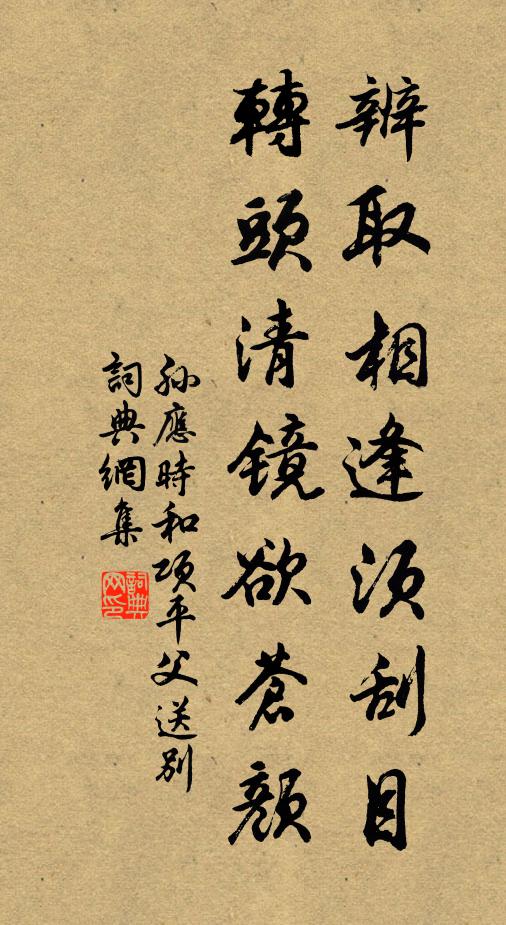 辨取相逢須刮目
轉頭清鏡欲蒼顏
孫應時和項平父送別
詞典網集
詞典网印